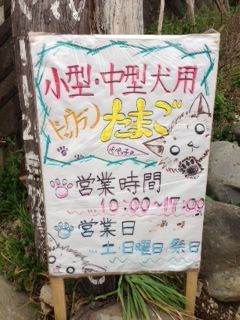 小型・中型犬用
ドッグラン
たまご
営業時間
10:00~17:00
営業日
…土・日曜日 祭日